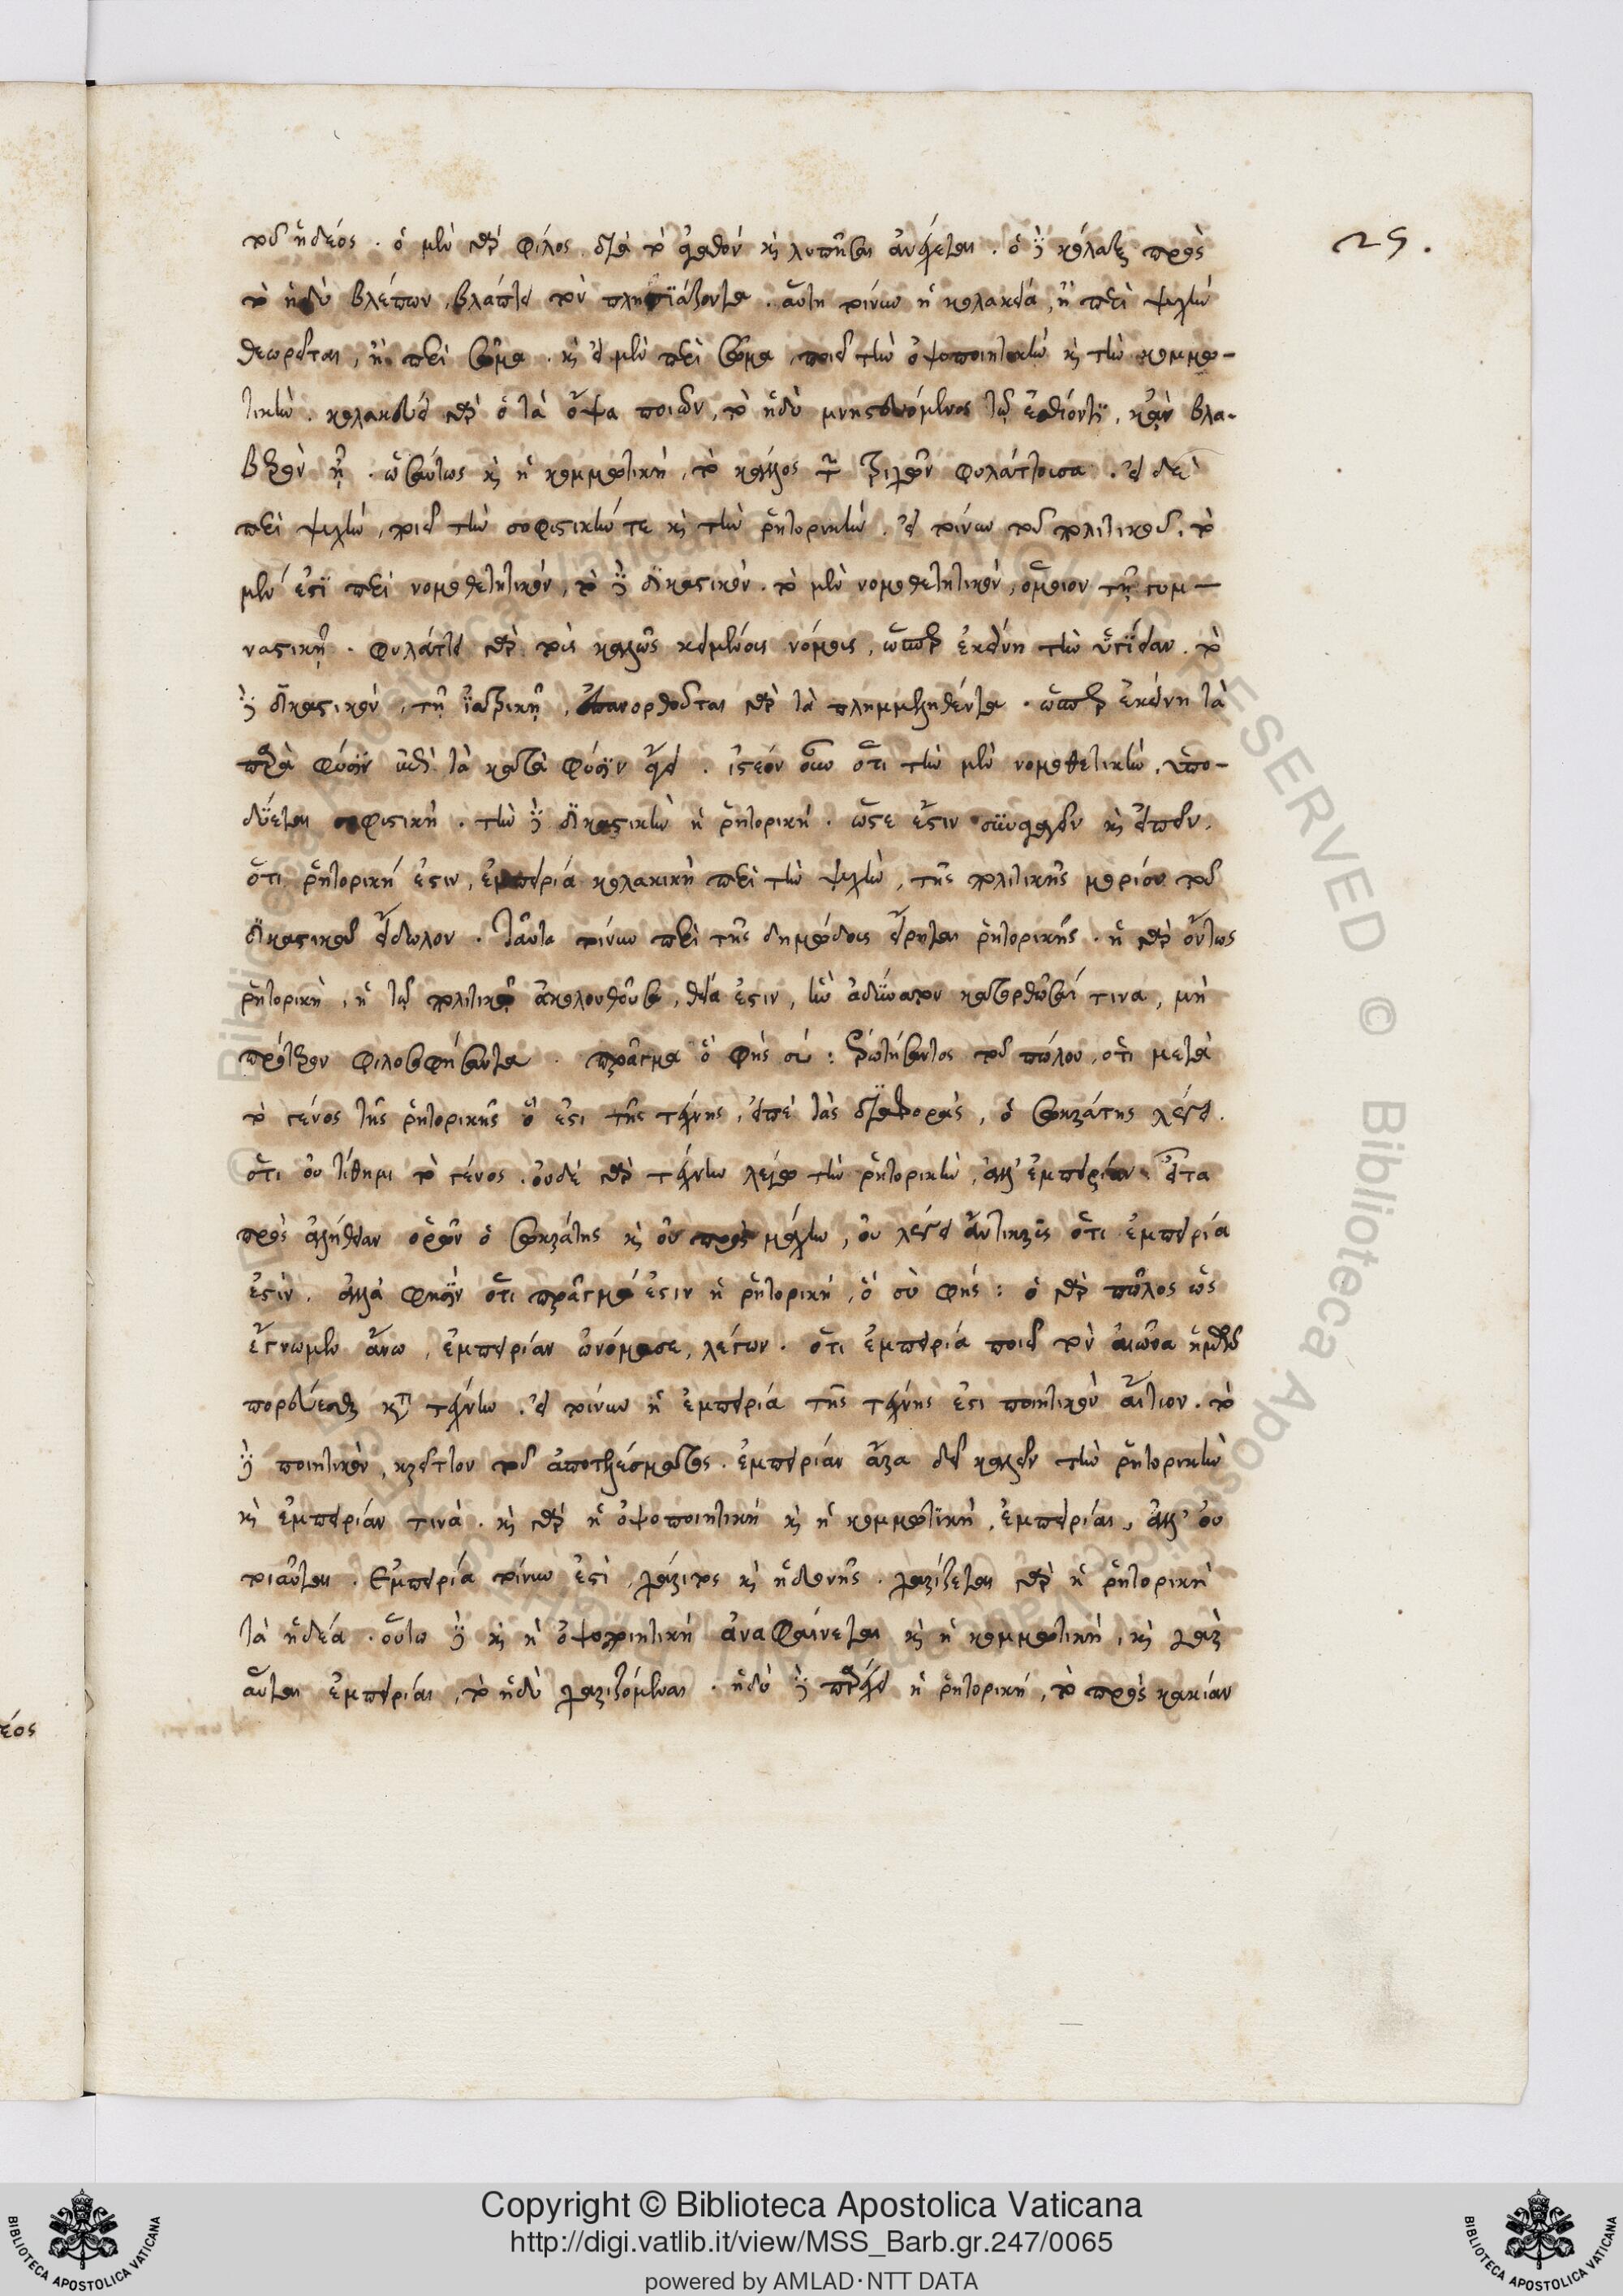 τοῦ ἡδέος. ὁ μὲν γὰρ φίλος διὰ τὸ ἀγαθὸν καὶ λυπῆσαι ἀνέχεται. ὁ δὲ κόλαξ πρὸς
τὸ ἡδὺ βλέπων, βλάπτει τὸν πλησιάζοντα. αὕτη τοίνυν ἡ κολακεία, ἢ περὶ ψυχὴν
θεωρεῖται, ἢ περὶ σῶμα. καὶ εἰ μὲν περὶ σῶμα, ποιεῖ τὴν ὀψοποιητικὴν καὶ τὴν κομμω-
τικὴν. κολακεύει γὰρ ὁ τὰ ὄψα ποιῶν, τὸ ἡδὺ μνηστευόμενος τῷ ἐσθίοντι, κἂν βλα-
βερὸν ᾖ. ὡσαύτως καὶ ἡ κομμωτικὴ, τὸ κάλλος τῶν τριχῶν φυλάττουσα. εἰ δὲ
περὶ ψυχὴν, ποιεῖ τὴν σοφιστικήν τε καὶ τὴν ῥητορικήν. εἰ τοίνυν τοῦ πολιτικοῦ, τὸ
μέν ἐστι περὶ νομοθετητικόν, τὸ δὲ δικαστικόν. τὸ μὲν νομοθετητικόν, ὅμοιον τῇ γυμ-
ναστικῇ. φυλάττει γὰρ τοὺς καλῶς κειμένους νόμους, ὥσπερ ἐκείνη τὴν ὑγίειαν. τὸ
δὲ δικαστικόν, τῇ ἰατρικῇ, ἐπανορθοῦται γὰρ τὰ πλημμεληθέντα. ὥσπερ ἐκείνη τὰ
παρὰ φύσιν ἐπὶ τὰ κατὰ φύσιν ἄγει. ἰστέον οὖν ὅτι τὴν μὲν νομοθετικὴν, ὑπο-
δύεται σοφιστική. τὴν δὲ δικαστικὴν ἡ ῥητορική. ὥστε ἔστιν συναγαγεῖν καὶ εἰπεῖν,
ὅτι ῥητορική ἐστιν, ἐμπειρία κολακικὴ περὶ τὴν ψυχὴν, τῆς πολιτικῆς μορίου τοῦ
δικαστικοῦ εἴδωλον. Ταῦτα τοίνυν περὶ τῆς δημώδους εἴρηται ῥητορικῆς. ἡ γὰρ ὄντως
ῥητορικὴ, ἡ τῷ πολιτικῷ ἀκολουθοῦσα, θεία ἐστιν, ἣν ἀδύνατον κατορθῶσαί τινα, μὴ
πρότερον φιλοσοφήσαντα. πρᾶγμα ὃ φῂς σύ: Ἐρωτήσαντος τοῦ πώλου, ὅτι μετὰ
τὸ γένος τῆς ῥητορικῆς ὅ ἐστι τῆς τέχνης, εἰπὲ τὰς διαφορὰς, ὁ σωκράτης λέγει.
ὅτι οὐ τίθημι τὸ γένος. οὐδὲ γὰρ τέχνην λέγω τὴν ῥητορικὴν, ἀλλ' ἐμπειρίαν. εἶτα
πρὸς ἀλήθειαν ὁρῶν ὁ σωκράτης καὶ οὐ πρὸς μάχην, οὐ λέγει ἄντικρυς ὅτι ἐμπειρία
ἐστίν. ἀλλὰ φησὶν ὅτι πρᾶγμά ἐστιν ἡ ῥητορική, ὃ σὺ φῄς: ὁ γὰρ πῶλος ὡς
ἔγνωμεν ἄνω, ἐμπειρίαν ὠνόμασε, λέγων. ὅτι ἐμπειρία ποιεῖ τὸν αἰῶνα ἡμῶν
πορεύεσθαι κατὰ τέχνην. εἰ τοίνυν ἡ ἐμπειρία τῆς τέχνης ἐστὶ ποιητικὸν αἴτιον. τὸ
δὲ ποιητικὸν, κρεῖττον τοῦ ἀποτελέσματος. ἐμπειρίαν ἄρα δεῖ καλεῖν τὴν ῥητορικὴν
καὶ ἐμπειρίαν τινὰ. καὶ γὰρ ἡ ὀψοποιητικὴ καὶ ἡ κομμωτικὴ, ἐμπειρίαι, ἀλλ' οὐ
τοιαῦται. Εμπειρία τοίνυν ἐστὶ, χάριτος καὶ ἡδονῆς. χαρίζεται γὰρ ἡ ῥητορικὴ
τὰ ἡδέα. οὕτω δὲ καὶ ἡ ὀψοποιητικὴ ἀναφαίνεται καὶ ἡ κομμωτικὴ, καὶ γὰρ
αὗται ἐμπειρίαι, τὸ ἡδὺ χαριζόμεναι. ἡδὺ δὲ παρέχει ἡ ῥητορική, τὸ πρὸς κακίαν
25.
έος
Copyright © Biblioteca Apostolica Vaticana
http://digi.vatlib.it/view/MSS_Barb.gr.247/0065
powered by AMLAD·NTT DATA